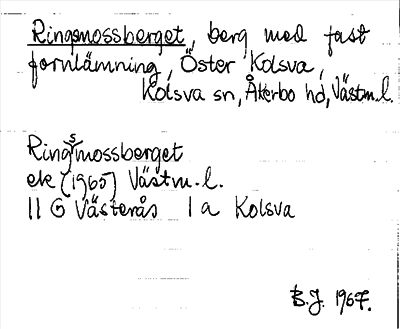 Ringsmossberget, berg med fast
fornlämning, Öster Kolsva,
Kolsva sn, Åkerbo hd, Västm.l.
Ringsmossberget
ek (1965) Västm.l.
11 G Västerås 1 a Kolsva
B.J. 1967.